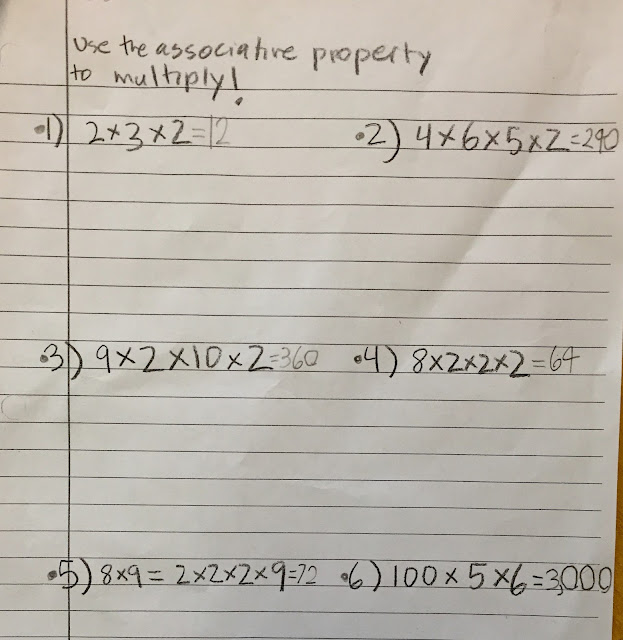 Use the associative property
to multiply!
•1) 2×3×2=12 •2) 4×6×5×2=240
•3) 9×2×10×2=360 •4) 8×2×2×2=64
•5) 8×9= 2×2×2×9=72 •6) 100×5×6=3,000